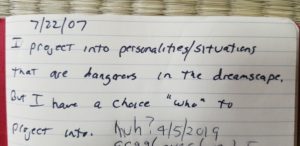 7/22/07
I project into personalities/situations
that are dangerous in the dreamscape.
But I have a choice "who" to
project into. Huh? 4/5/2019